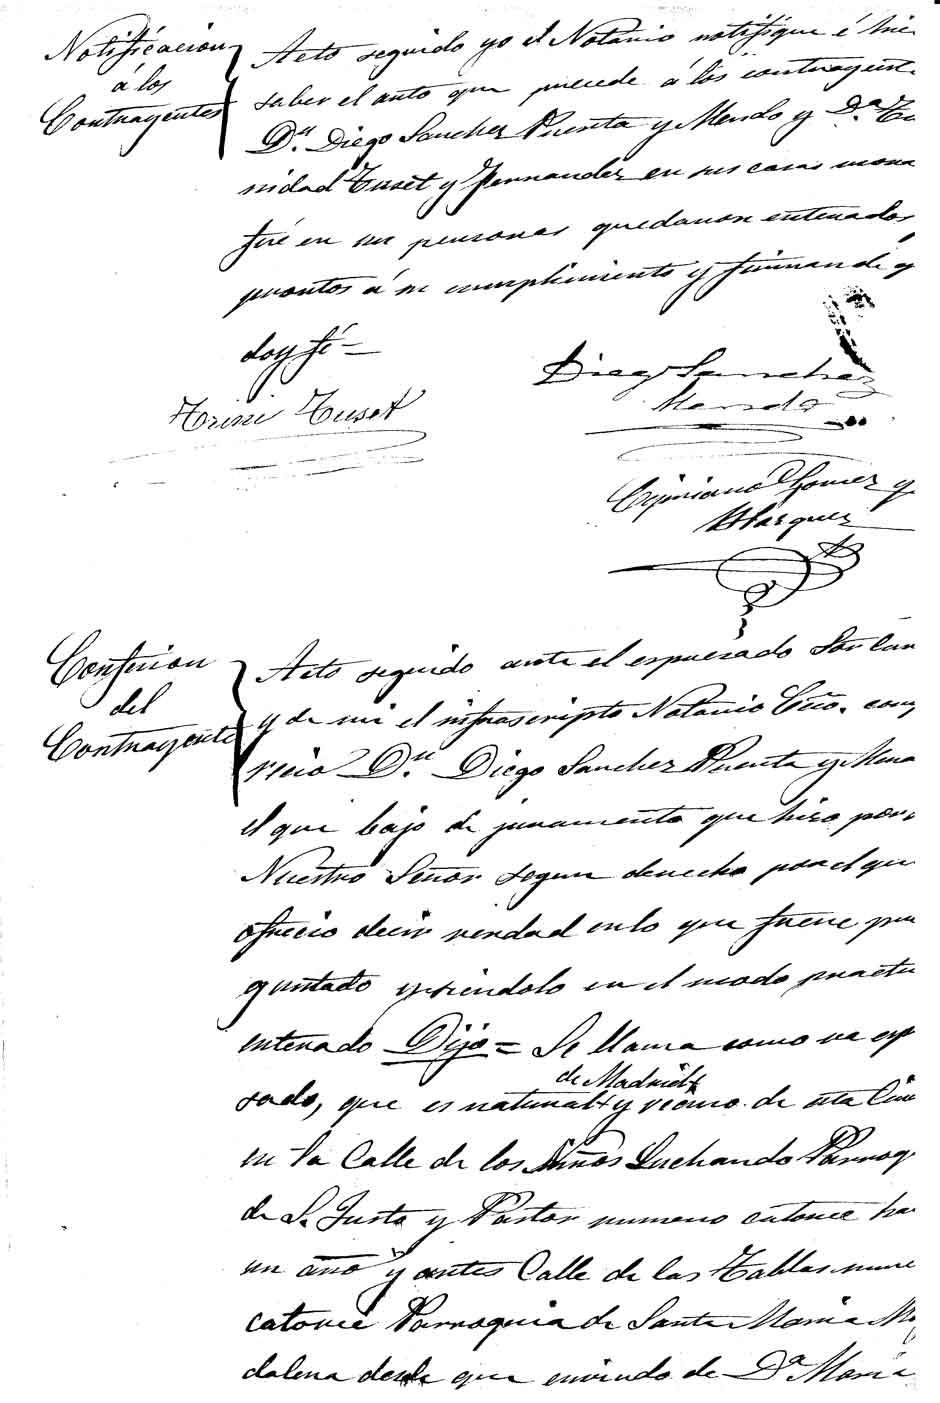 Notificacion
á los
Contrayentes
Acto seguido yo el Notario notifiqué é hice
saber el auto que precede á los contrayent
Dn. Diego Sanchez Puerta y Mendo y Da. Tri
nidad Tuset y Fernandez en sus casas mora
fué en sus personas quedaron enterados
prontos á su cumplimiento y firman de q
doy fé =
Trini Tuset
Diego Sanchez
Mendo
Cipriano Gomez y
Blazquez
Confesion
del
Contrayente
Acto seguido ante el espresado Sor. Cur
y de mi el infrascripto Notario Eco. comp
recio Dn. Diego Sanchez Puerta y Men
el que bajo de juramento que hizo por
Nuestro Señor segun derecho por el que
ofrecio decir verdad en lo que fuere pre
guntado y siendolo en el modo practi
enterado Dijo = Se llama como va esp
sado, que es natural de Madrid y vecino de esta Ciu
en la Calle de los Niños Luchando Parroq
de S. Justo y Pastor numero catorce ha
un año y antes Calle de las Tablas nume
catorce Parroquia de Santa Maria Ma
dalena desde que enviudo de Da. Maria